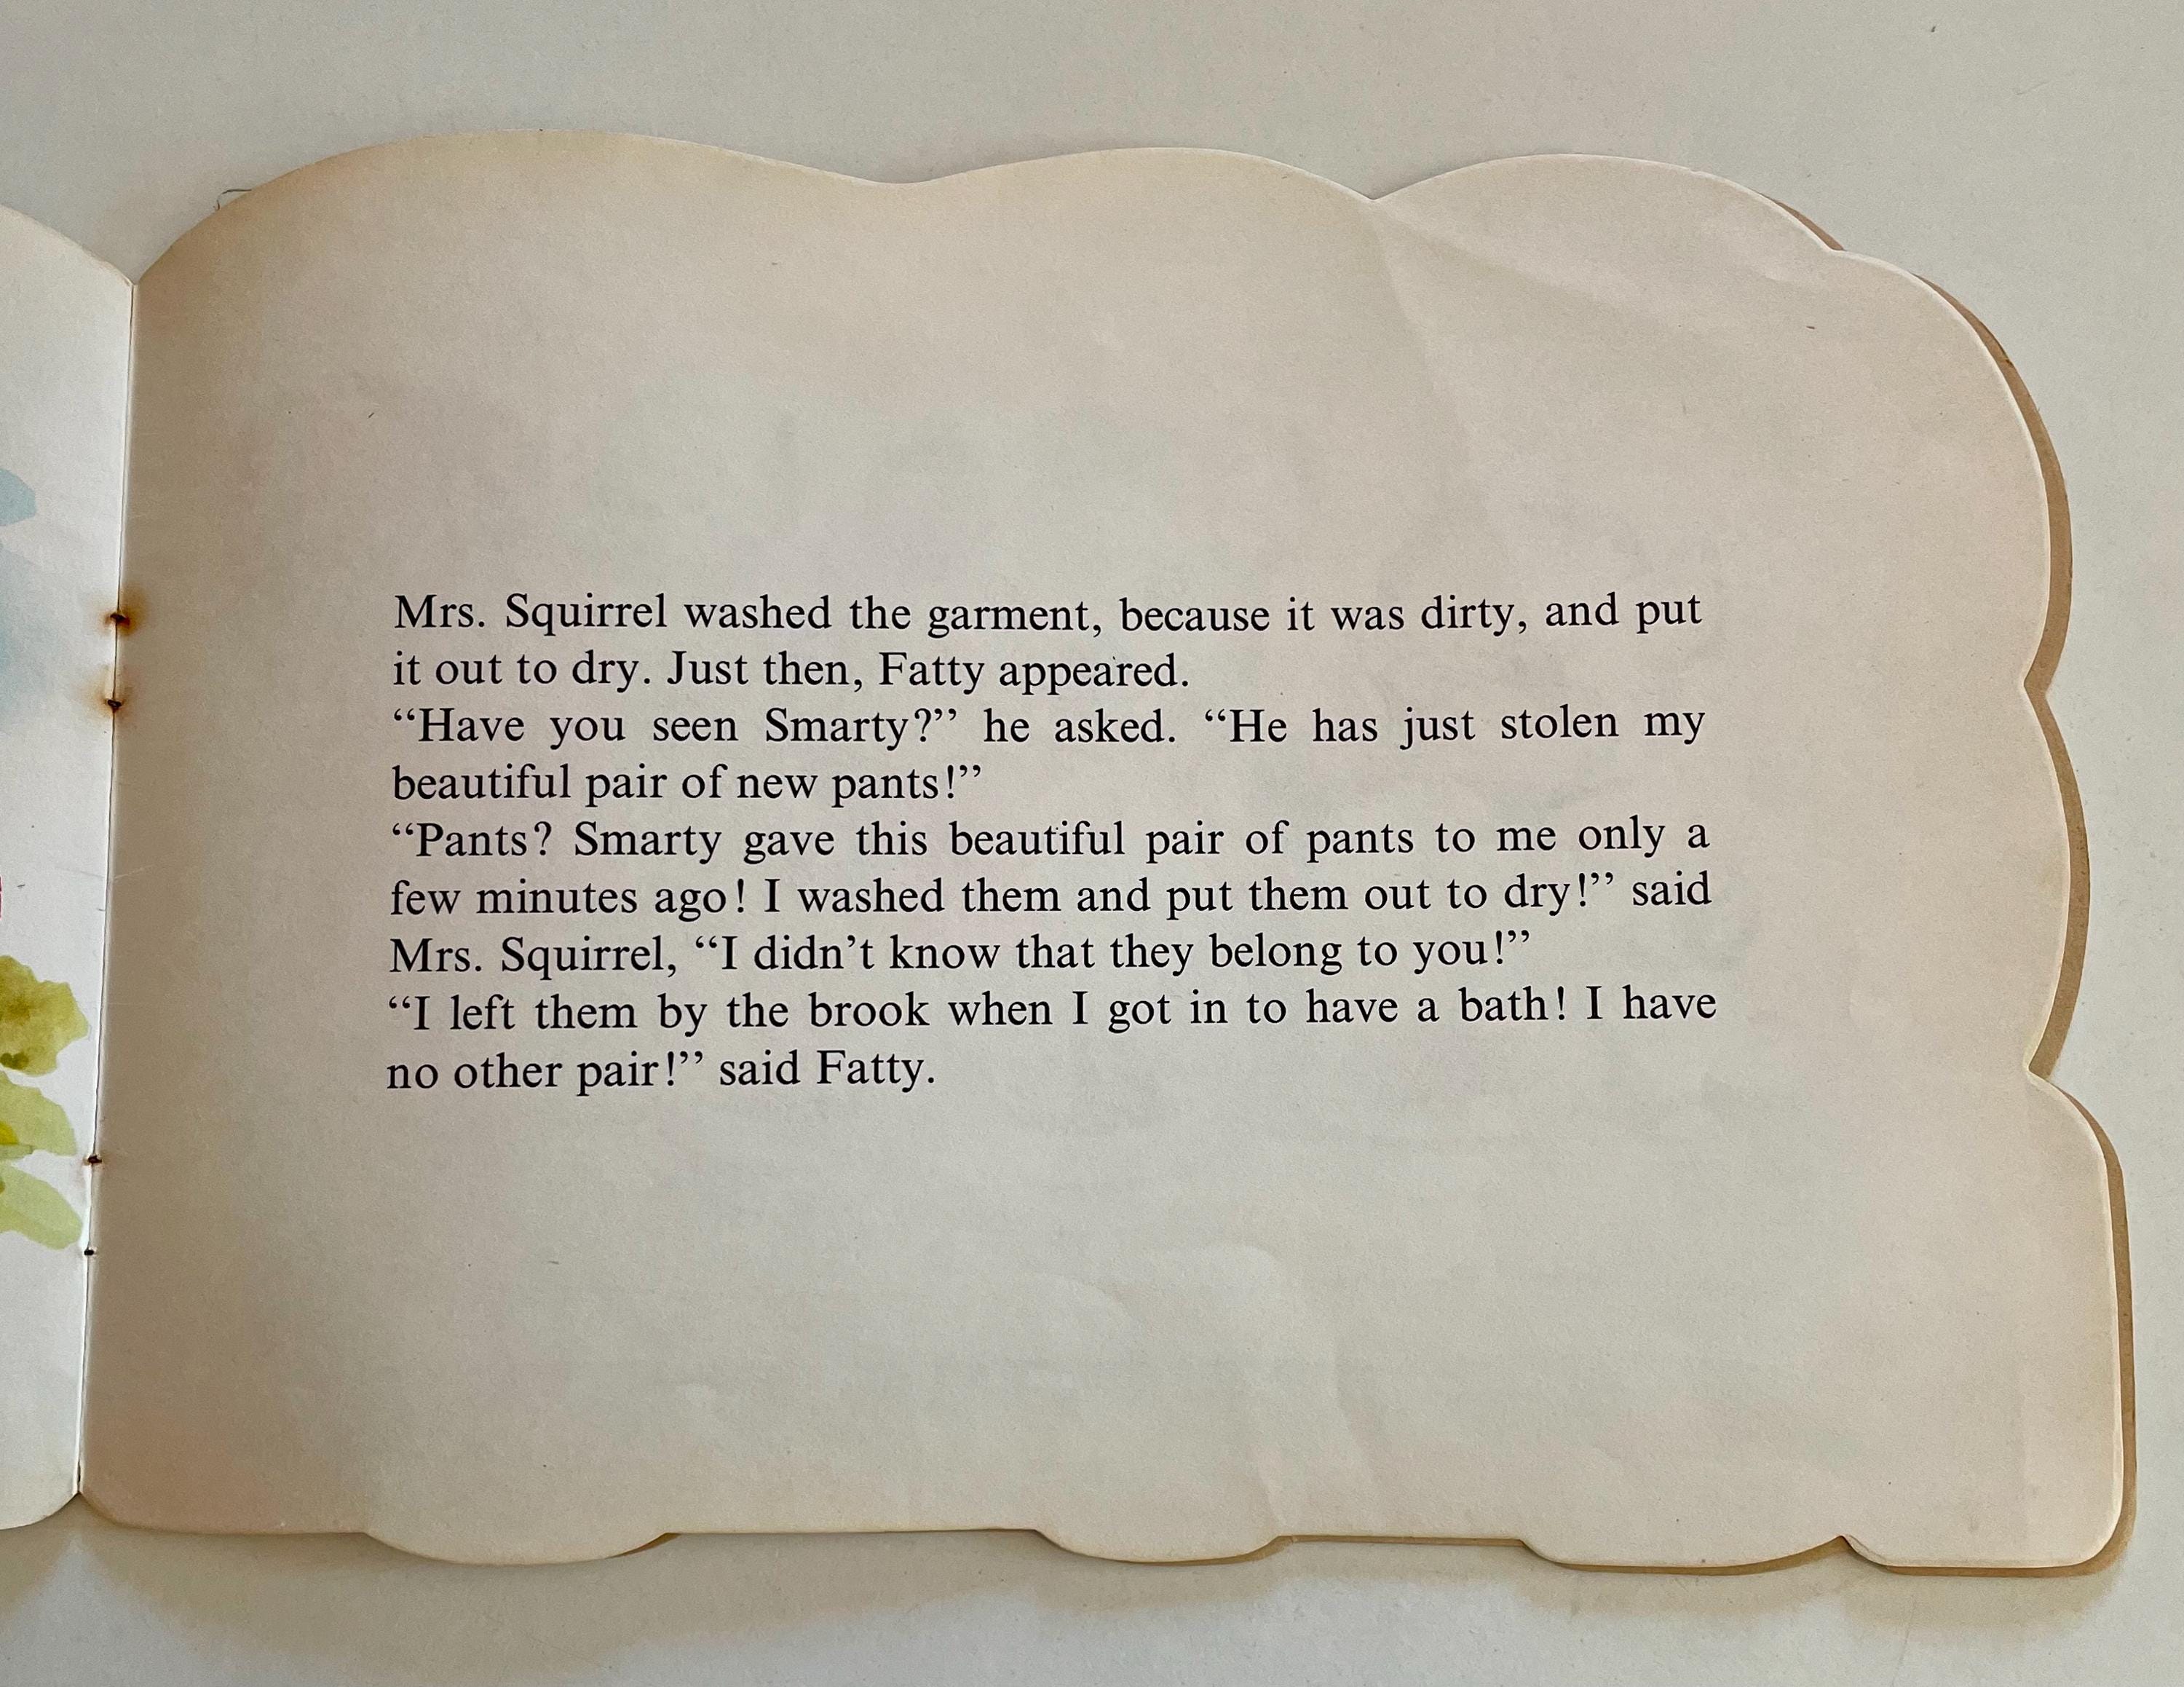 Mrs. Squirrel washed the garment, because it was dirty, and put
it out to dry. Just then, Fatty appeared.
“Have you seen Smarty?” he asked. “He has just stolen my
beautiful pair of new pants!”
“Pants? Smarty gave this beautiful pair of pants to me only a
few minutes ago! I washed them and put them out to dry!” said
Mrs. Squirrel, “I didn’t know that they belong to you!”
“I left them by the brook when I got in to have a bath! I have
no other pair!” said Fatty.